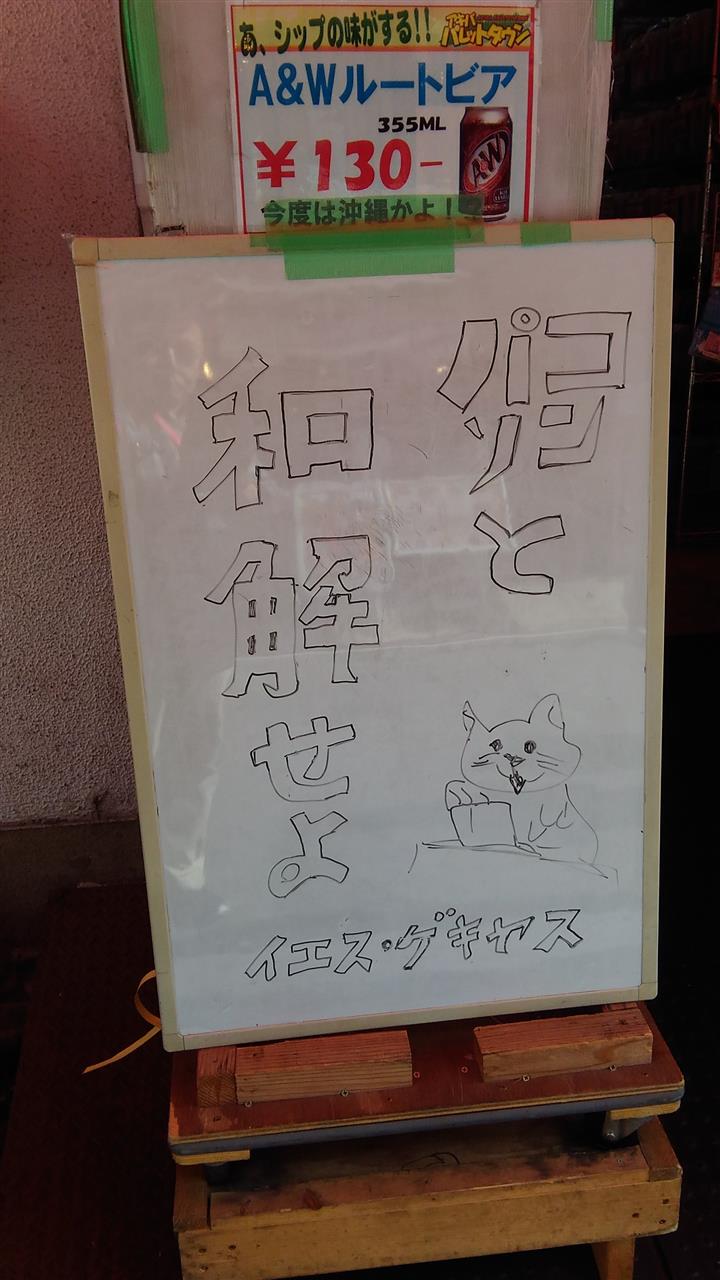 あ、シップの味がする!!
アキバ
パレットタウン
A&Wルートビア
355ML
¥130-
A&W
今度は沖縄かよ!
パソコンと
和解せよ
イエス・ゲキヤス